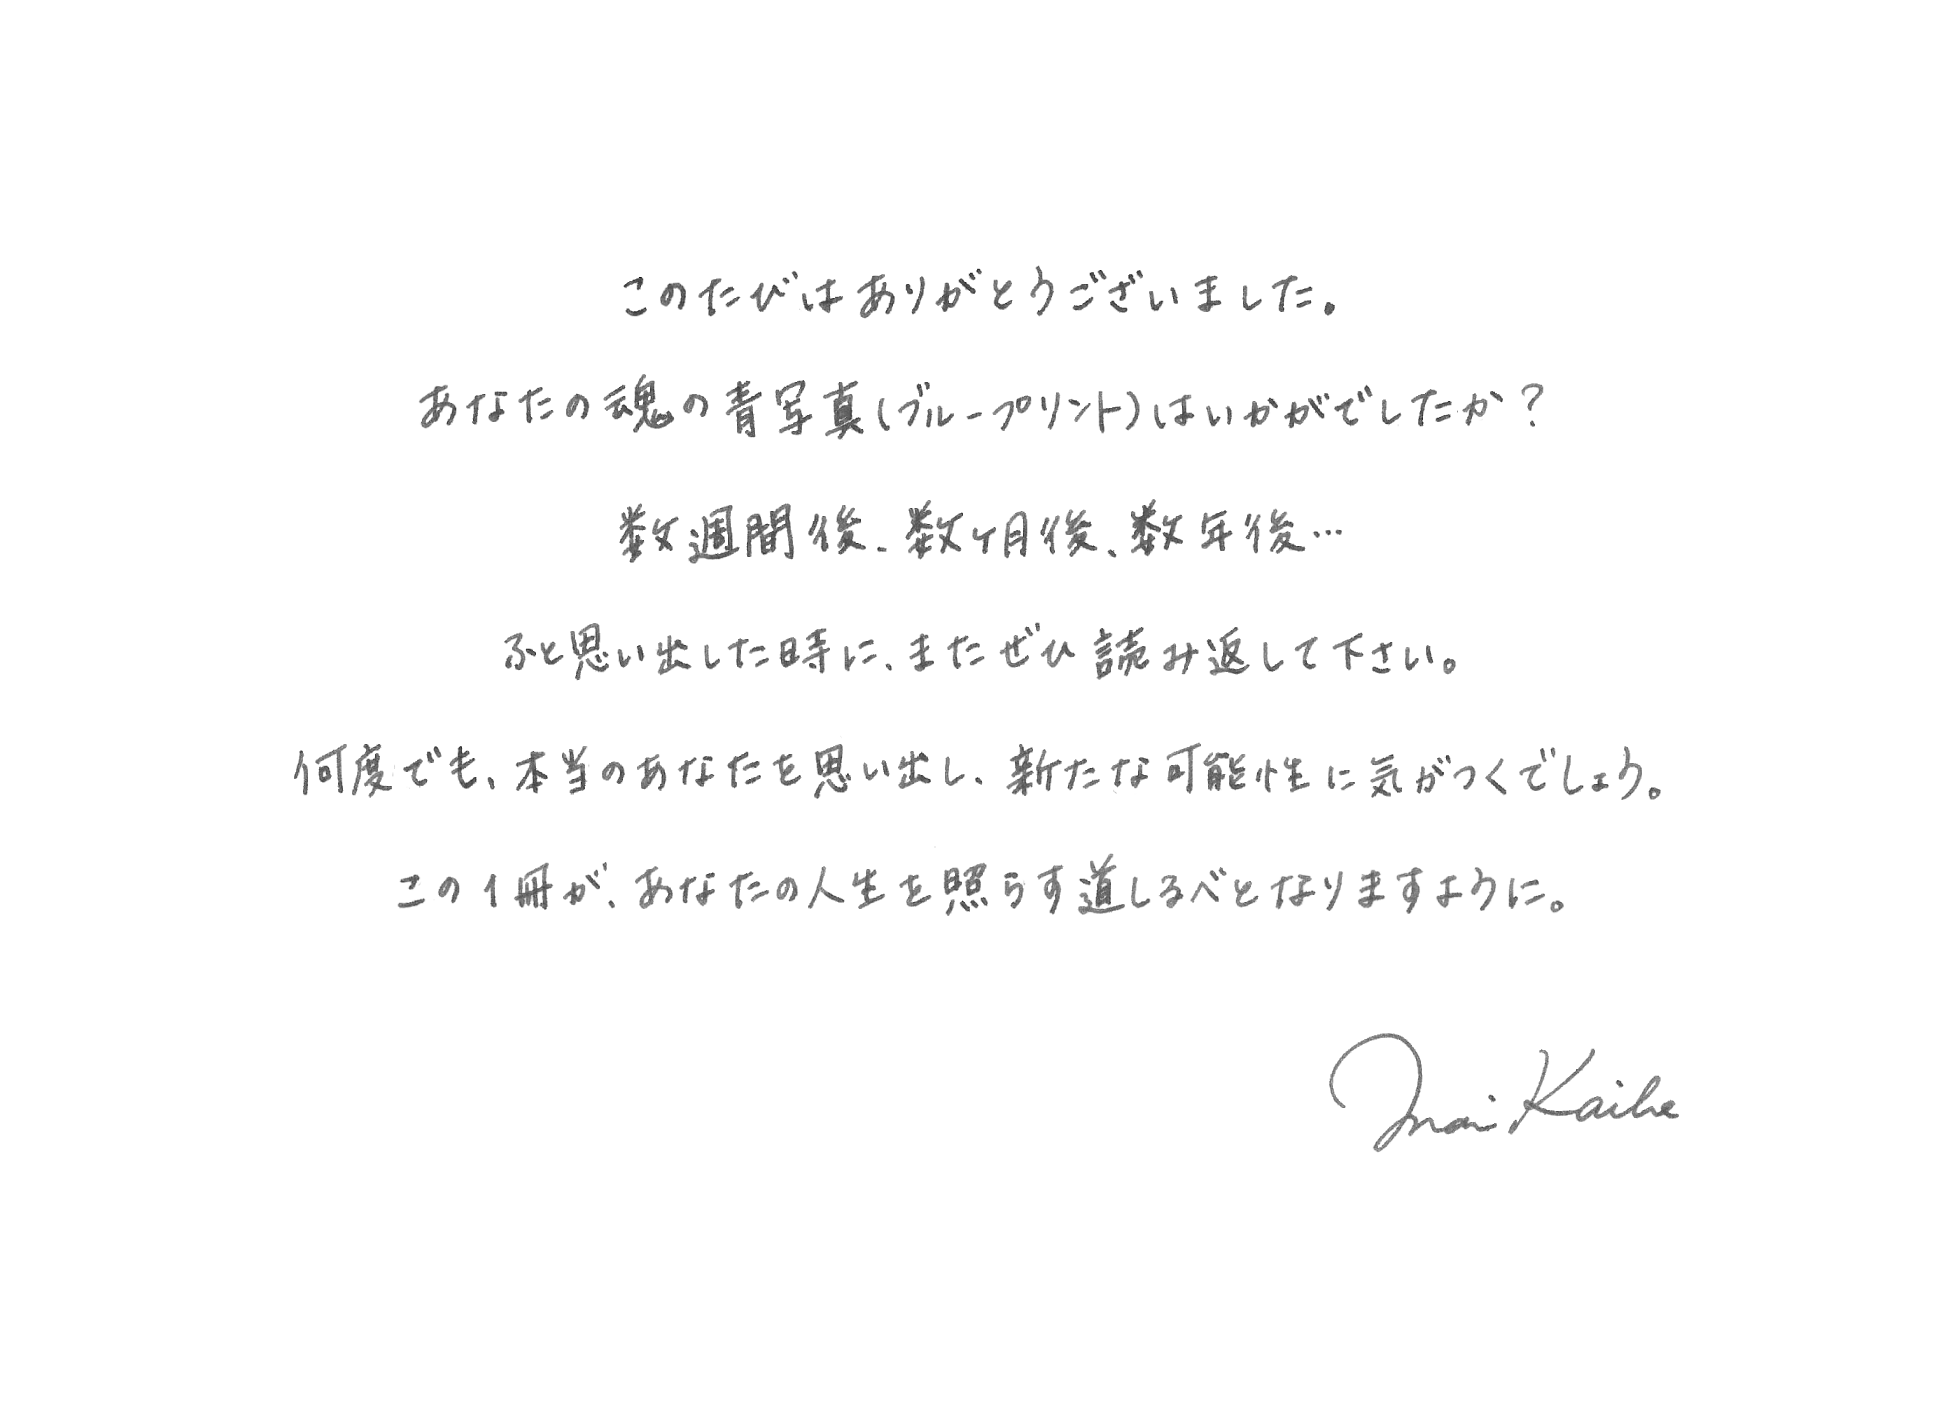 このたびはありがとうございました。
あなたの魂の青写真(ブループリント)はいかがでしたか?
数週間後、数ヶ月後、数年後…
ふと思い出した時に、またぜひ読み返して下さい。
何度でも、本当のあなたを思い出し、新たな可能性に気がつくでしょう。
この1冊が、あなたの人生を照らす道しるべとなりますように。
Mai Kaibe